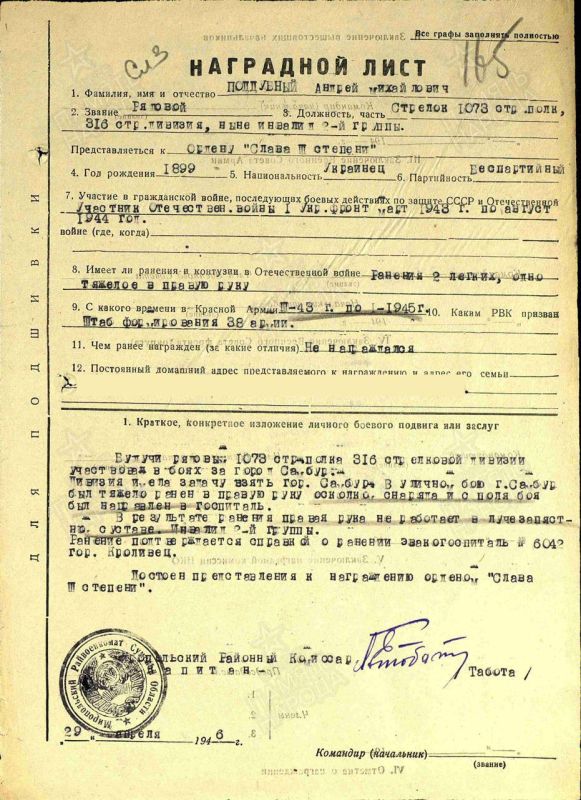 Все графы заполнять полностью
165
НАГРАДНОЙ ЛИСТ
1. Фамилия, имя и отчество ПОДДУБНЫЙ Андрей Михайлович
2. Звание Рядовой 3. Должность, часть Стрелок 1073 стр.полк,
316 стр.дивизия, ныне инвалид 2-й группы.
Представляется к Ордену "Слава Ш степени"
4. Год рождения 1899 5. Национальность Украинец 6. Партийность Беспартийный
7. Участие в гражданской войне, последующих боевых действиях по защите СССР и Отечественной
Участник Отечествен.войны I Укр.фронт март 1943 г. по август
1944 год.
войне (где, когда)
8. Имеет ли ранения и контузии в Отечественной войне Ранения 2 легких, одно
Тяжелое в правую руку
9. С какого времени в Красной Армии Ш-43 г. по I-1945г. 10. Каким РВК призван
Штаб формирования 38 армии.
11. Чем ранее награжден (за какие отличия) Не награждался
12. Постоянный домашний адрес представляемого к награждению и адрес его семьи
ДЛЯ ПОДШИВКИ
1. Краткое, конкретное изложение личного боевого подвига или заслуг
Будучи рядовым 1073 стр.полка 316 стрелковой дивизии
участвовал в боях за город Самбур.
Дивизия имела задачу взять гор. Самбур. В уличном бою г.Самбур
был тяжело ранен в правую руку осколком снаряда и с поля боя
был направлен в госпиталь.
В результате ранения правая рука не работает в лучезапяст-
ном суставе. Инвалид 2-й группы.
Ранение подтверждается справкой о ранении эвакогоспиталь № 6042
гор. Кролевец.
Достоен представления к награждению орденом "Слава
Ш степени".
Миропольский Районный Комиссар
Капитан- Табота
Миропольский Райвоенкомат Сумской Области
"29" апреля 1946 г.
Командир (начальник)
(звание)